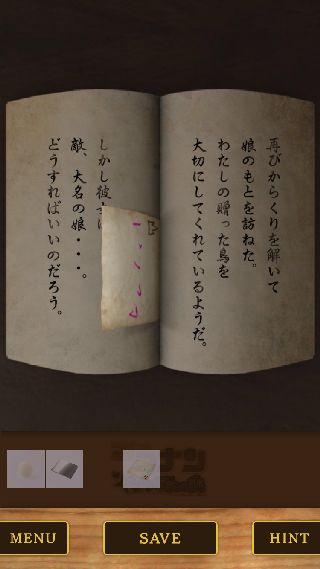 再びからくりを解いて
娘のもとを訪ねた。
わたしの贈った鳥を
大切にしてくれているようだ。
しかし彼
敵、大名の娘・・・。
どうすればいいのだろう。
MENU
SAVE
HINT